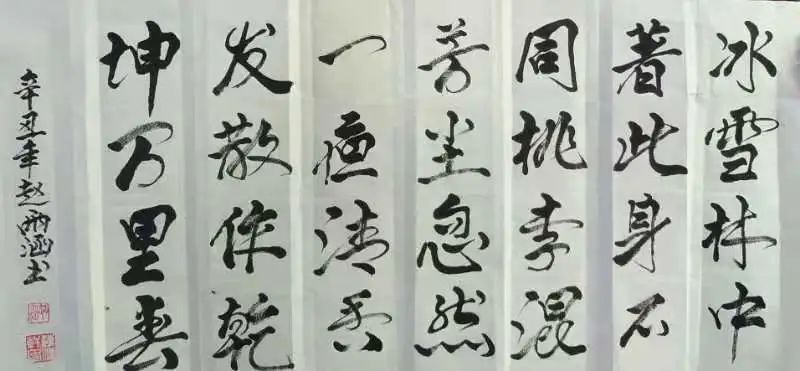 冰雪林中
著此身不
同桃李混
芳尘忽然
一夜清香
发散作乾
坤万里春
辛丑年赵雨涵书